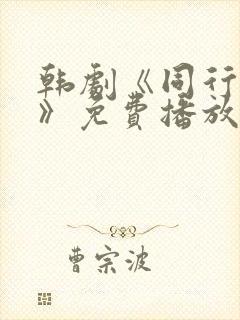 韩剧《同行
》免费播放
曹宗波